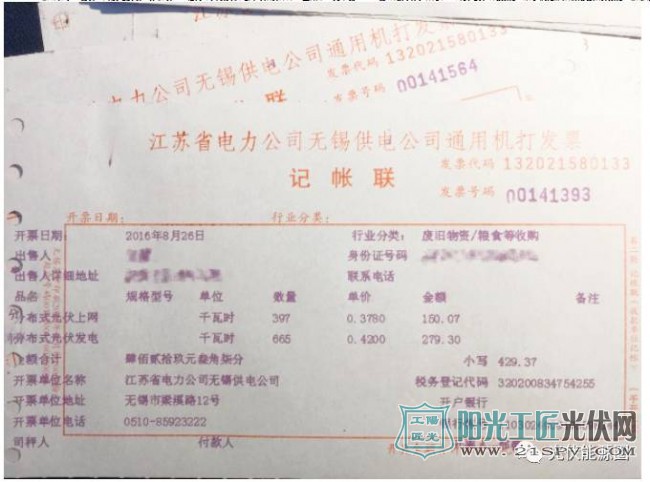 江苏省电力公司无锡供电公司通用机打发票
发票代码 132021580133
发票号码 00141564
联
江苏省电力公司无锡供电公司通用机打发票
发票代码 132021580133
记帐联
发票号码 00141393
开票日期： 行业分类：
开票日期： 2016年8月26日 行业分类： 废旧物资/粮食等收购
出售人 身份证号码
出售人详细地址 联系电话
品名 规格型号 单位 数量 单价 金额 备注
分布式光伏上网 千瓦时 397 0.3780 150.07
分布式光伏发电 千瓦时 665 0.4200 279.30
金额合计 肆佰贰拾玖元叁角柒分 小写 429.37
开票单位名称 江苏省电力公司无锡供电公司 税务登记代码 320200834754255
开票单位地址 无锡市梁溪路12号 开户银行
开票单位电话 0510-85923222
司秤人 付款人
阳光工匠光伏网
www.21spv.com
光伏能源圈